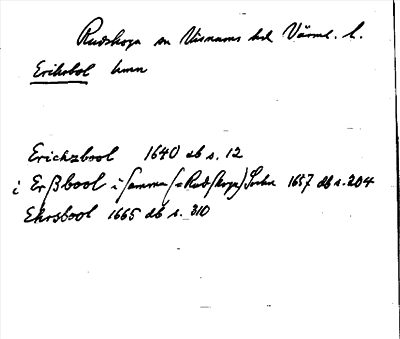 Rudskoga sn Visnums hd Värml. l.
Eriksbol hmn
Erichzbool 1640 db s. 12
i Erßbool i samma (= Rudskoga) Sochn 1657 db s. 204
Ehrsbool 1665 db s. 310